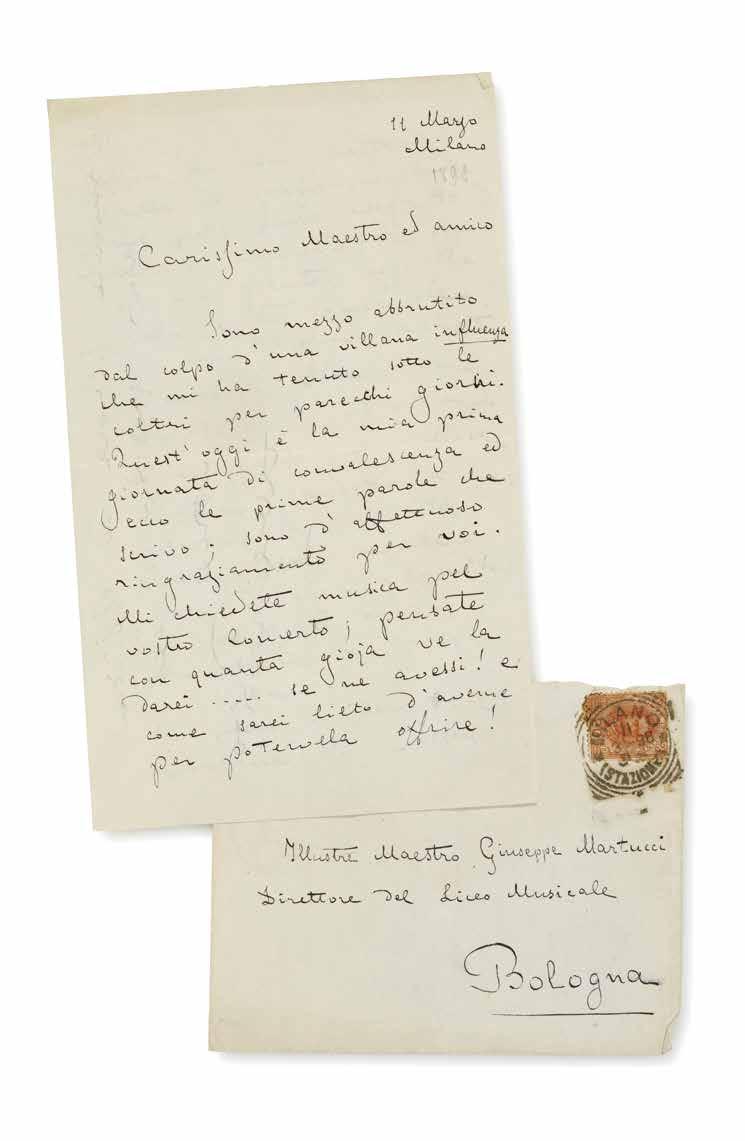 11 Marzo
Milano
1898
Carissimo Maestro ed amico
Sono mezzo abbrutito
dal colpo d'una villana influenza
che mi ha tenuto sotto le
coltri per parecchi giorni.
Quest'oggi è la mia prima
giornata di convalescenza ed
ecco le prime parole che
scrivo; sono d'affettuoso
ringraziamento per voi.
Mi chiedete musica pel
vostro Concerto; pensate
con quanta gioja ve la
darei ..... se ne avessi! e
come sarei lieto d'averne
per potervela offrire!
MILANO
11
98
(STAZIONE)
Illustre Maestro Giuseppe Martucci
Direttore del Liceo Musicale
Bologna